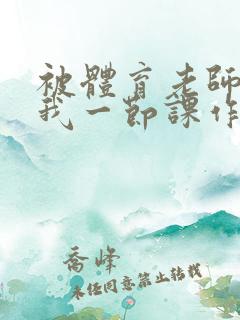 被體育老師
我一節課作
喬峰
未經同意禁止轉載